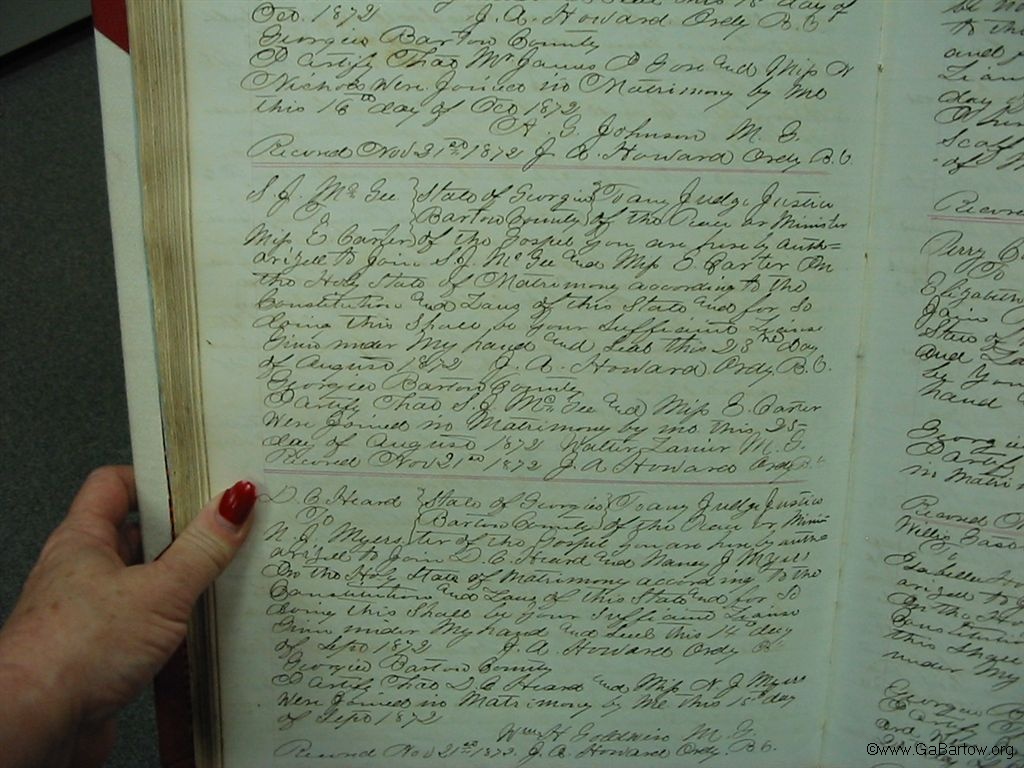 this 18 day of
Oct. 1872 J. A. Howard Ordy B. C
Georgia Bartow County
I Certify That Mr James P Gore and Miss N
Nichols Were Joined in Matrimony by me
this 16th day of Oct 1872
A. G. Johnson M. G.
Record Nov 21st 1872 J. A. Howard Ordy B. C.
S. J. McGee } State of Georgia } To any Judge Justice
To } Bartow County } of the Peace or Minister
Miss E Carter } of the Gospel you are hereby auth=
orized to Join S. J. McGee and Miss E Carter On
the Holy State of Matrimony according to the
Constitution and Laws of this State and for So
doing this Shall be your Sufficient License
Given under My hand and Seal this 23nd day
of August 1872 J. A. Howard Ordy B. C.
Georgia Bartow County
I Certify That S. J. McGee and Miss E. Carter
Were Joined in Matrimony by me this, 25
day of August 1872 Walter Lanier M. G
Record Nov 21st 1872 J. A Howard Ordy B. C
D. C Heard } State of Georgia } To any Judge Justice
To } Bartow County } of the Peace or, Minis
N. J. Myers ter of the Gospel you are hereby autho
orized to Join D. C. Heard and Nancy J Myers
On the Holy State of Matrimony according to the
Constitution and Laws of this State and for So
doing this Shall be your Sufficient License
Given under My hand and Seal this 14 day
of Sept 1872 J. A. Howard Ordy B C
Georgia Bartow County
I Certify That D. C Heard and Miss N J Myers
Were Joined in Matrimony by Me this 15 day
of Sept 1872
Wm H Goldwin M. G
Record Nov 21st 1872. J. A. Howard Ordy B. C.
to the
and
day
of M
Record
Perry
To
Elizabeth
Join
State of
and La
be You
hand
Georgia
I Certify
in Matrim
Record
Willis Eason
To
Isabella
orized to
On the Ho
Constitution
this Shall
under My
Georgia
I Certify
©www.GaBartow.org